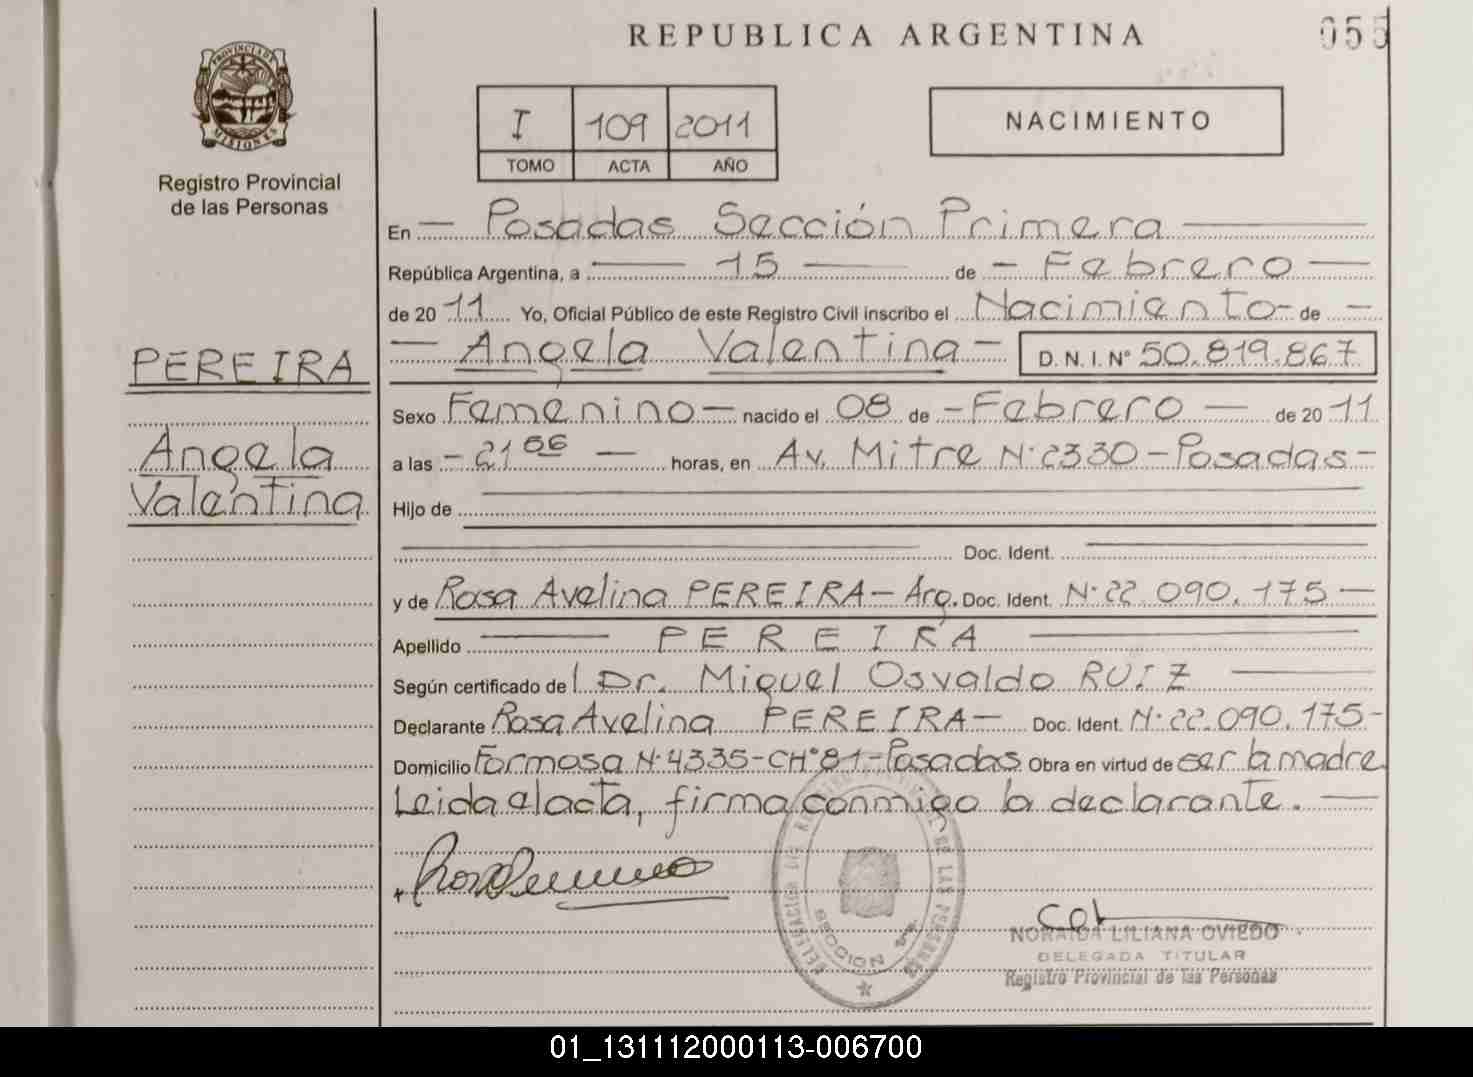 REPUBLICA ARGENTINA
055
PROVINCIA DE MISIONES
Registro Provincial
de las Personas
I 109 2011
TOMO ACTA AÑO
NACIMIENTO
En - Posadas Sección Primera
República Argentina, a 15 de - Febrero -
de 2011 Yo, Oficial Público de este Registro Civil inscribo el Nacimiento - de -
- Angela Valentina - D.N.I. N° 50.819.867
PEREIRA
Angela
Valentina
Sexo Femenino - nacido el 08 de - Febrero - de 2011
a las - 21 06 - horas, en Av. Mitre N° 2330 - Posadas -
Hijo de
Doc. Ident.
y de Rosa Avelina PEREIRA - Arg. Doc. Ident. N° 22.090.175 -
Apellido PEREIRA
Según certificado del Dr. Miguel Osvaldo RUIZ
Declarante Rosa Avelina PEREIRA - Doc. Ident. N° 22.090.175 -
Domicilio Formosa N° 4335 - CH° 81 - Posadas Obra en virtud de ser la madre.
Leida el acta, firma conmigo la declarante. -
SECCION 1ra.
NORAIDA LILIANA OVIEDO
DELEGADA TITULAR
Registro Provincial de las Personas
01_131112000113-006700